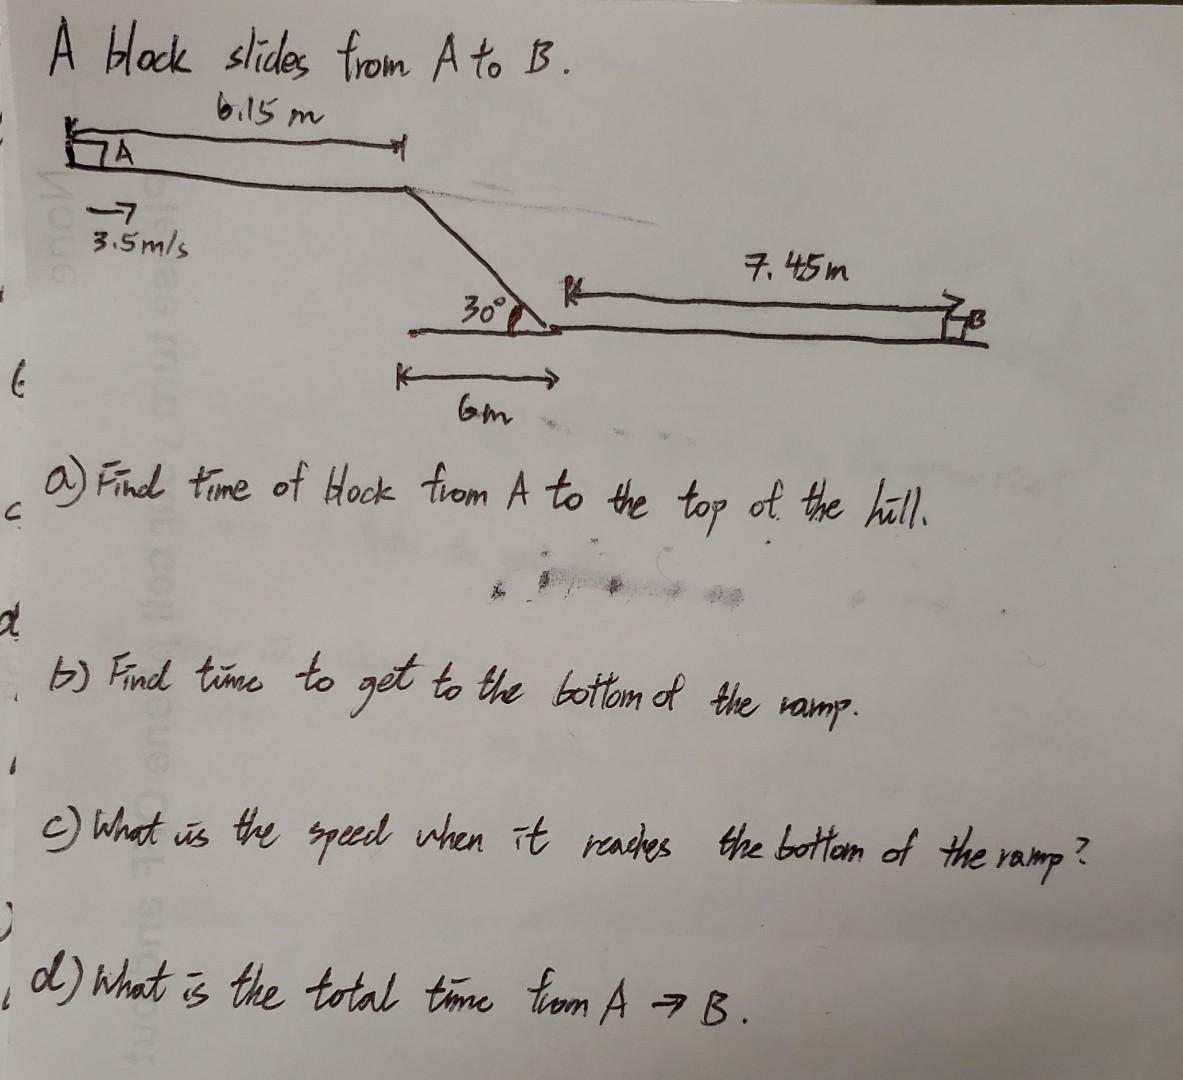 A block slides from A to B.
6.15 m
A
3.5m/s
7.45m
30°
B
6m
a) Find time of block from A to the top of the hill.
b) Find time to get to the bottom of the ramp.
c) What is the speed when it reaches the bottom of the ramp?
d) What is the total time from A → B.